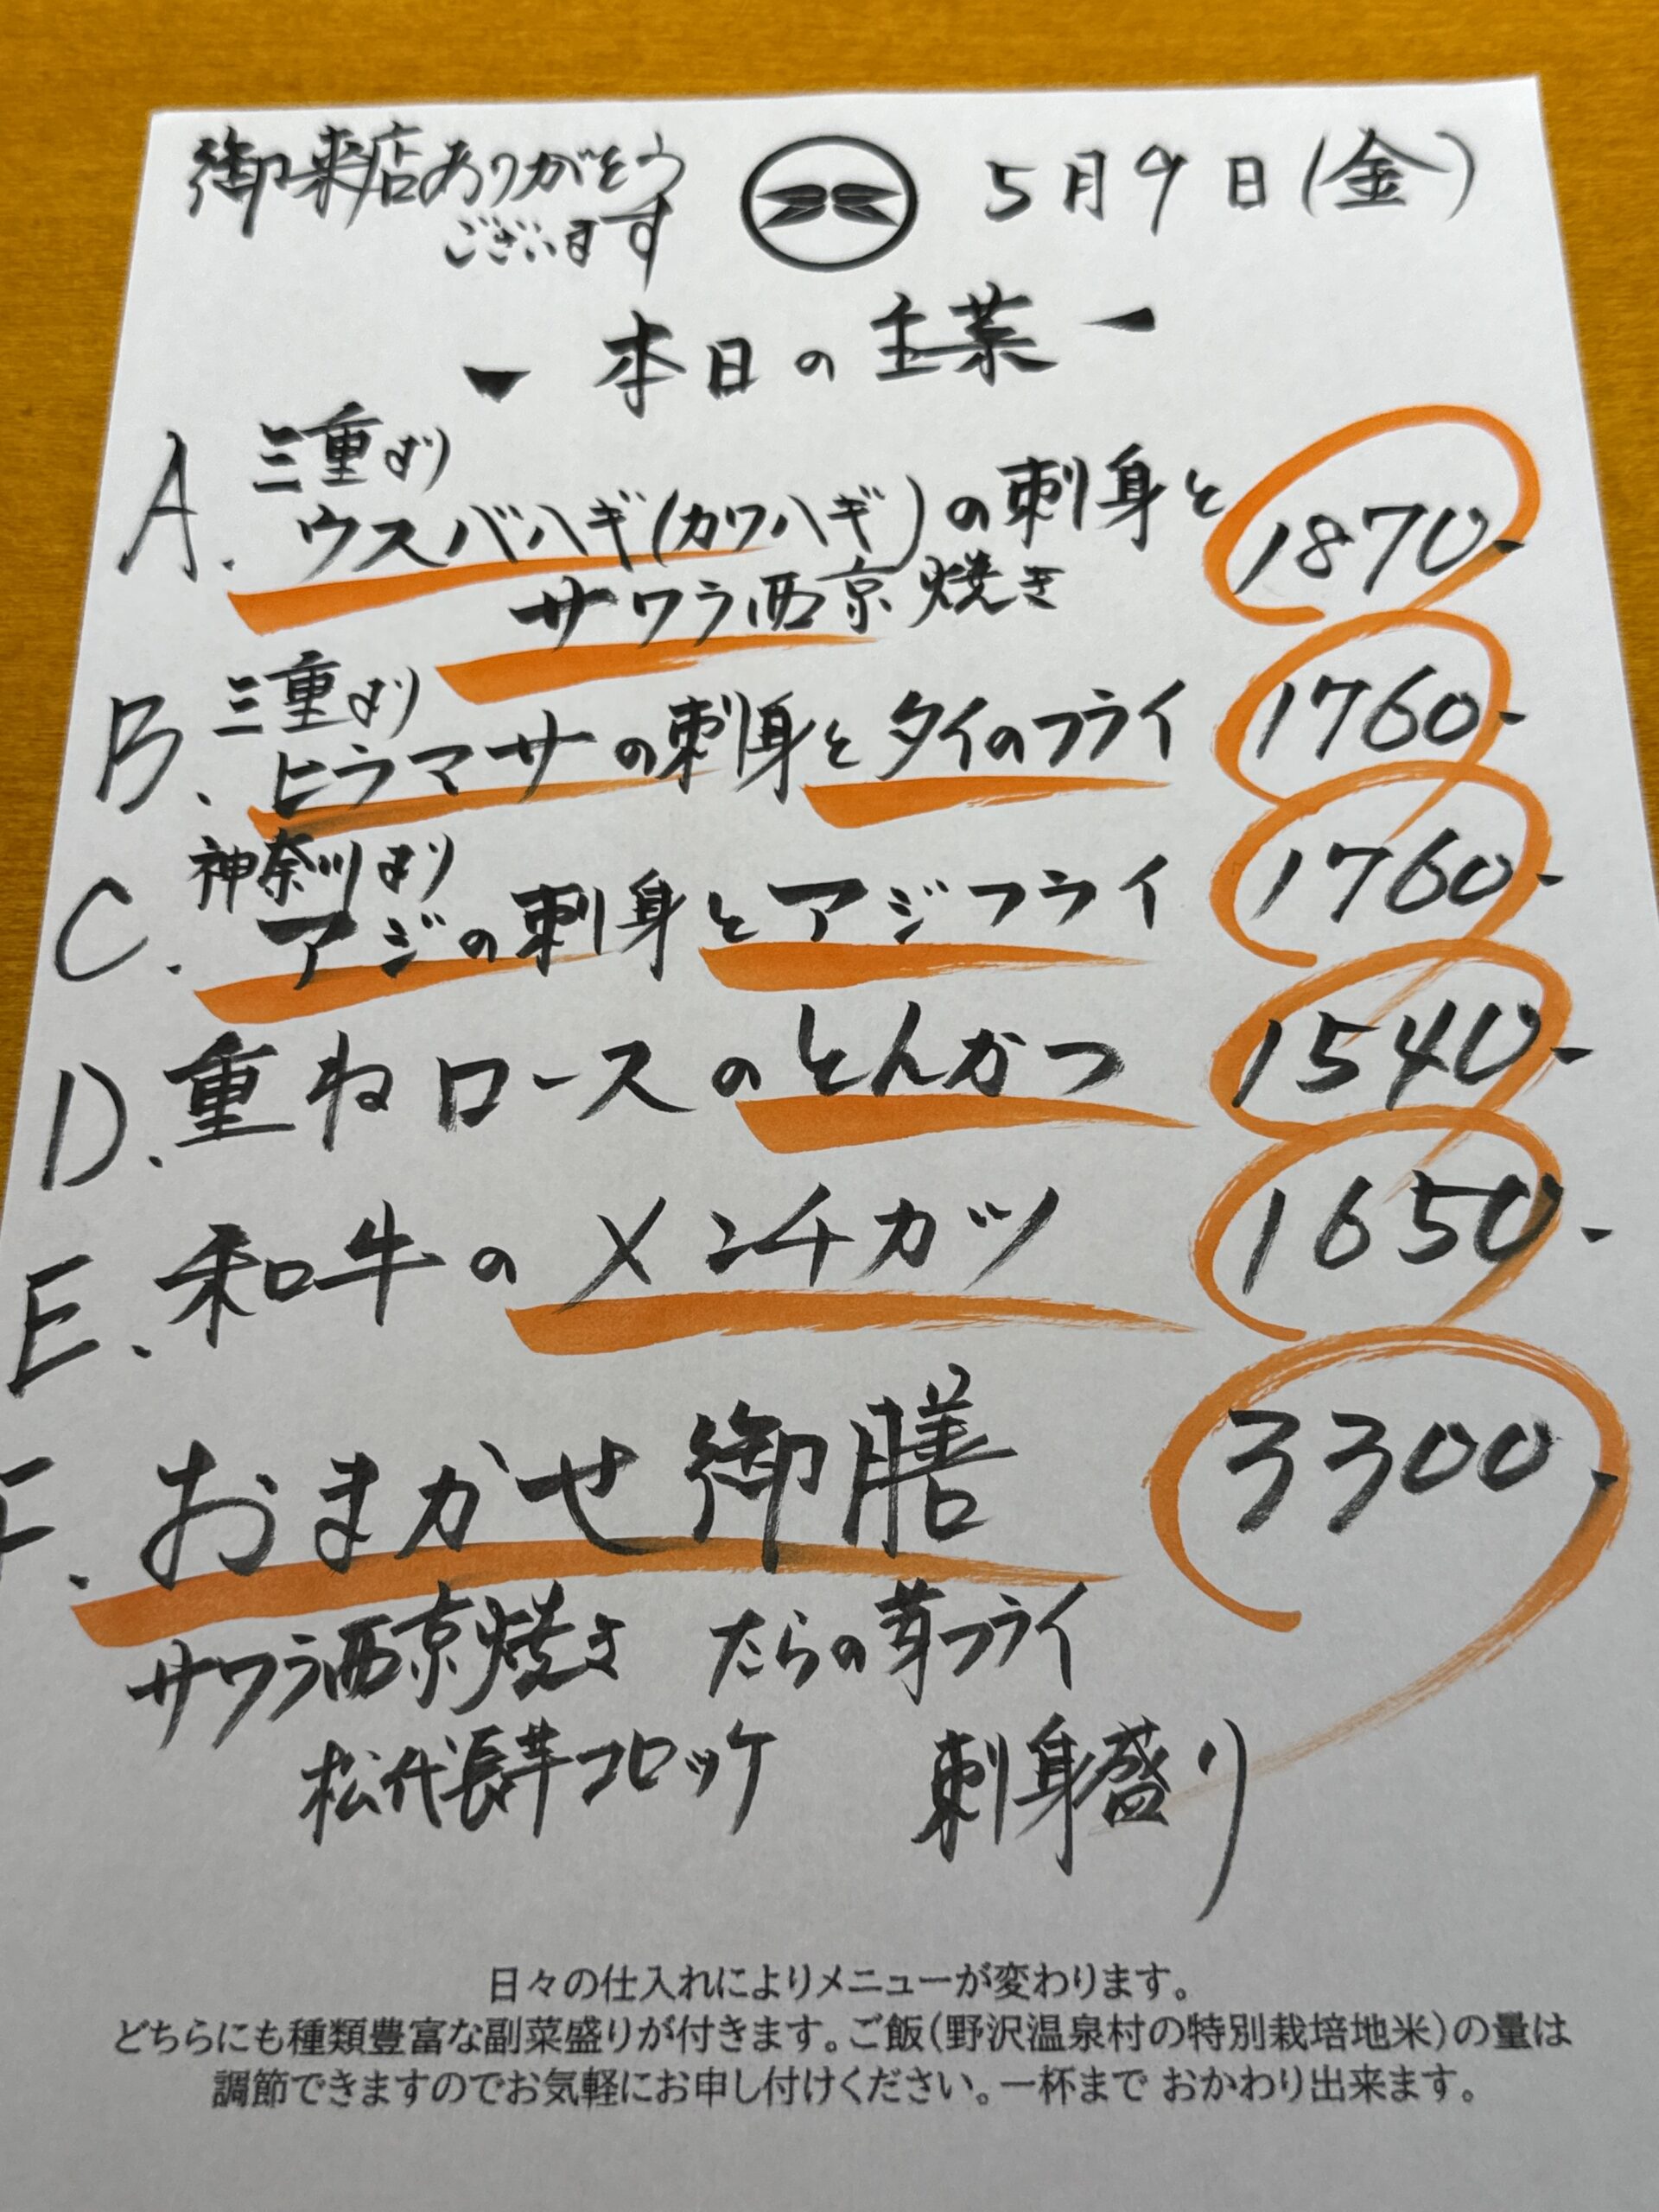 御来店ありがとう
ございます
5月9日(金)
- 本日の主菜 -
A. 三重より
ウスバハギ(カワハギ)の刺身と 1870-
サワラ西京焼き
B. 三重より
ヒラマサの刺身とタイのフライ 1760-
C. 神奈川より
アジの刺身とアジフライ 1760-
D. 重ねロースのとんかつ 1540-
E. 和牛のメンチカツ 1650-
F. おまかせ御膳 3300-
サワラ西京焼き たらの芽フライ
松代長芋コロッケ 刺身盛り
日々の仕入れによりメニューが変わります。
どちらにも種類豊富な副菜盛りが付きます。ご飯(野沢温泉村の特別栽培地米)の量は
調節できますのでお気軽にお申し付けください。一杯まで おかわり出来ます。